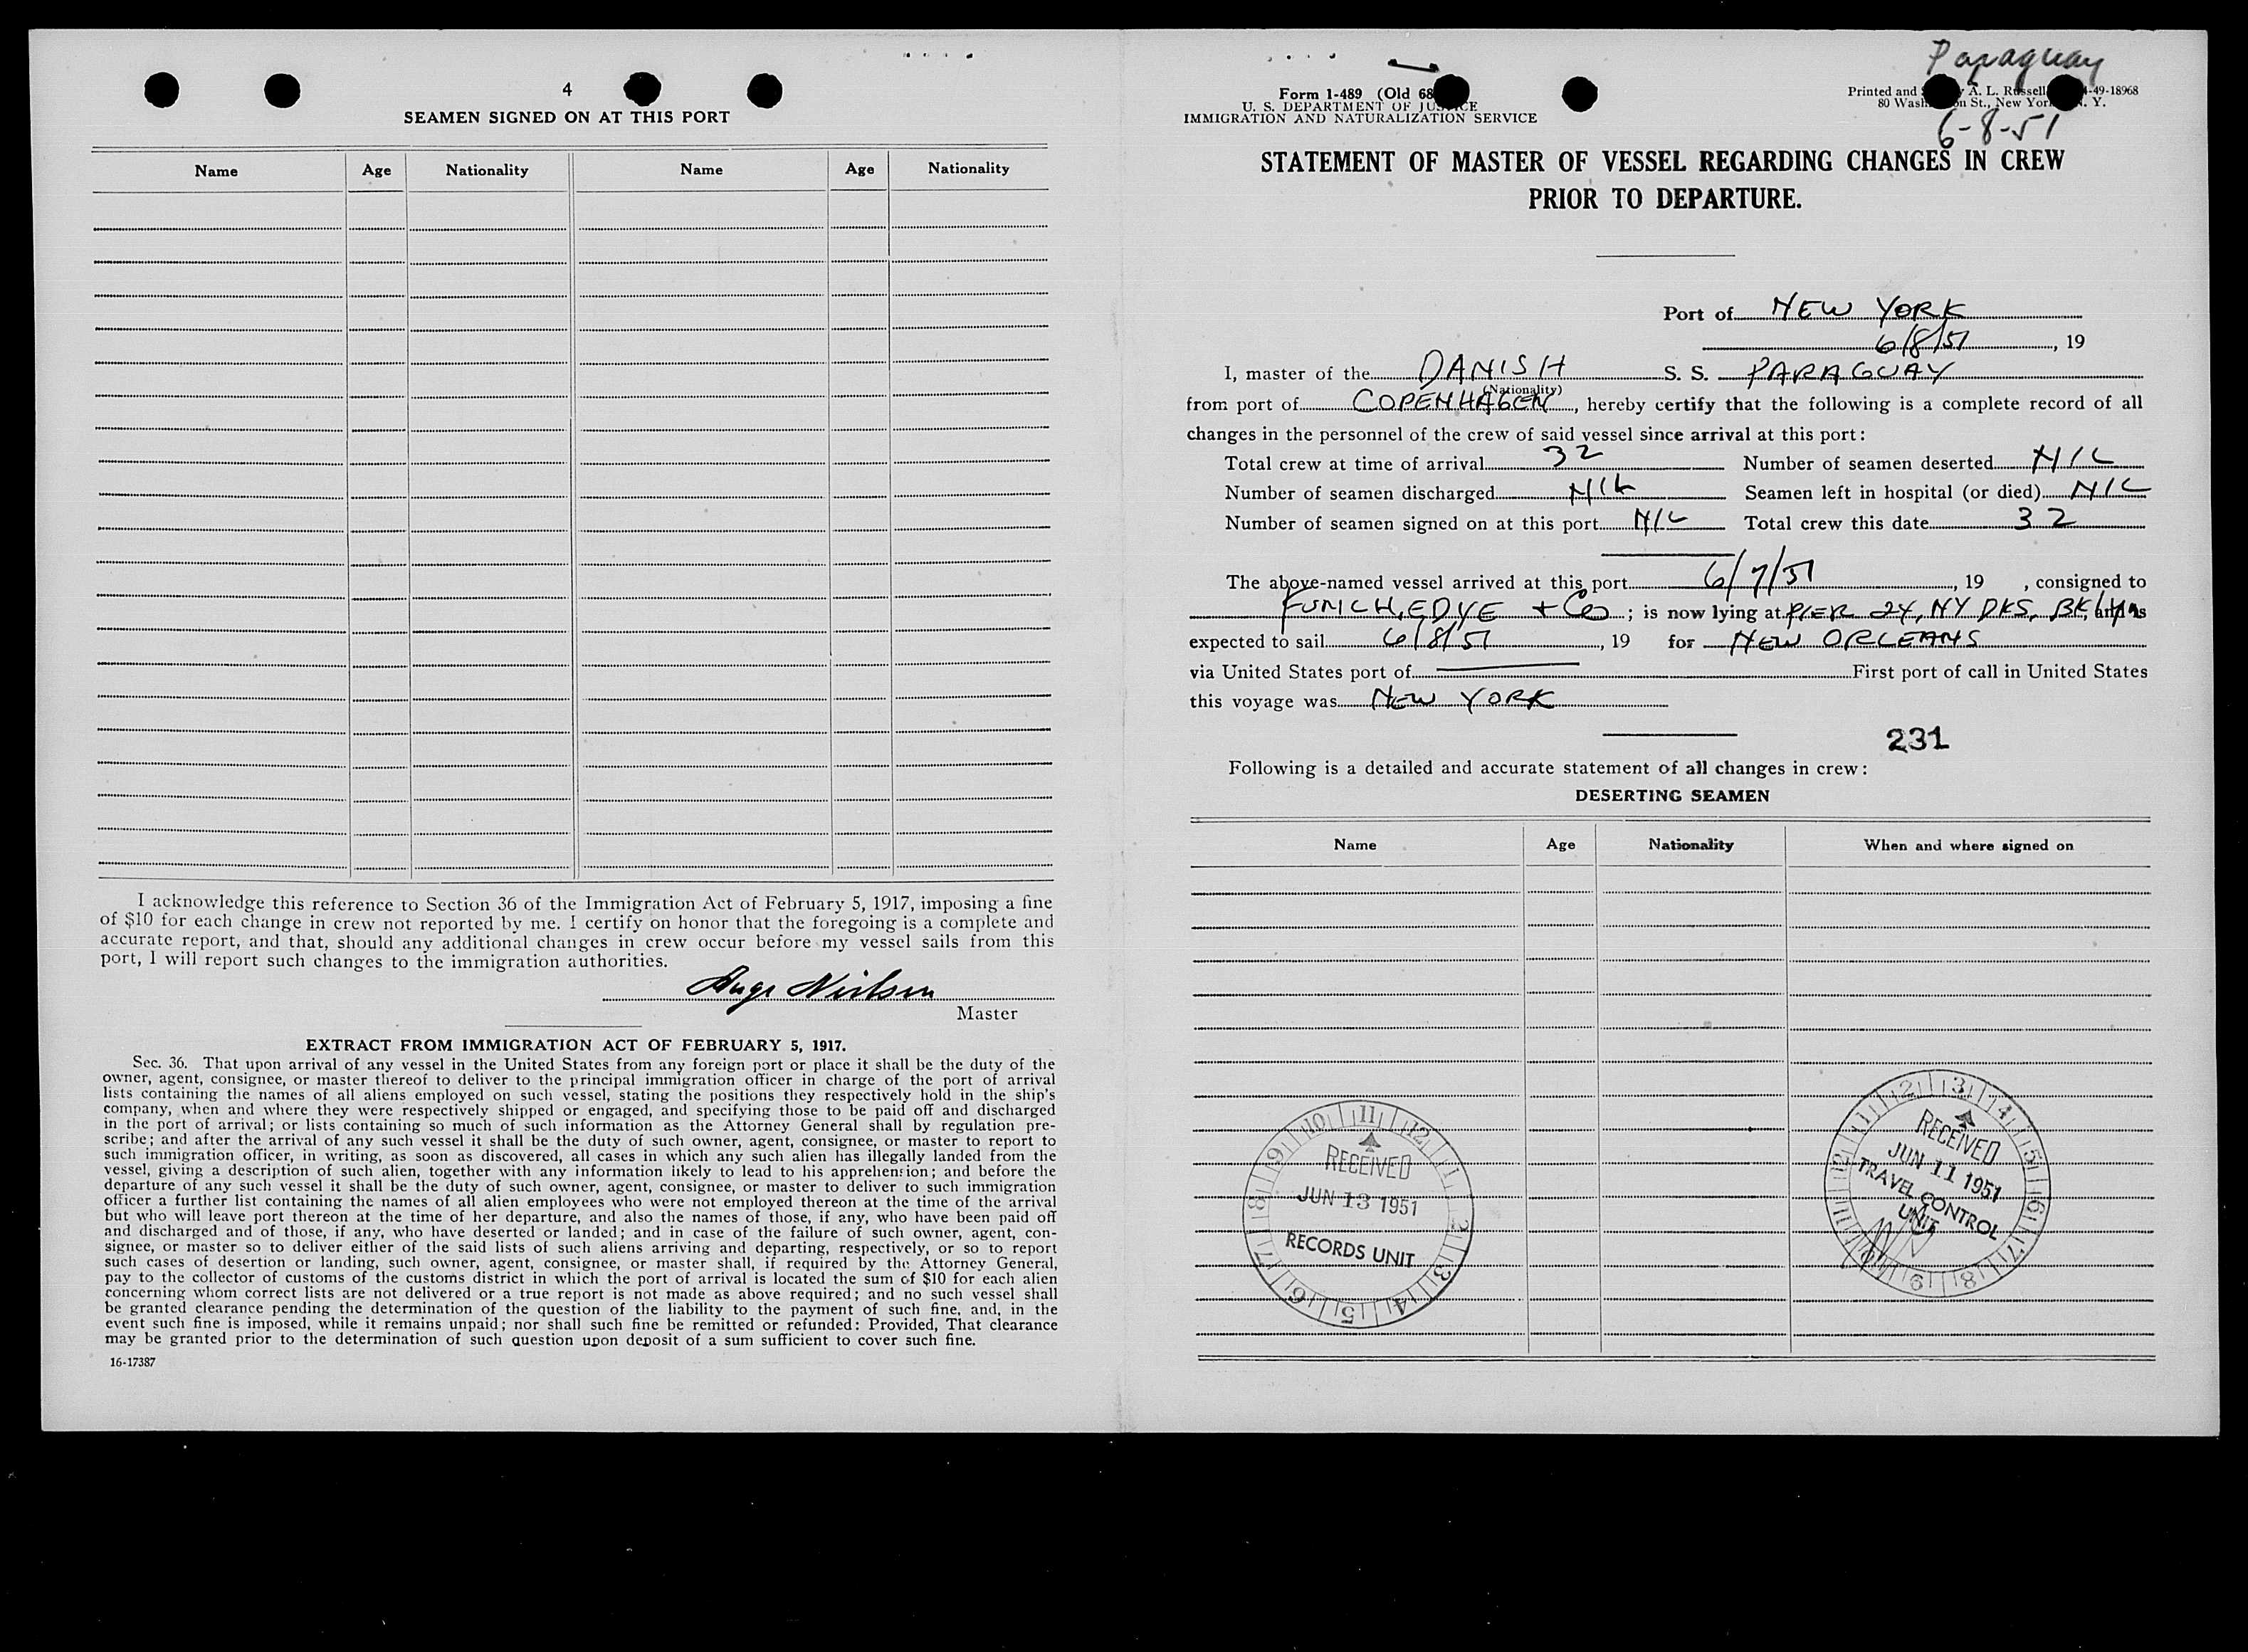 4
SEAMEN SIGNED ON AT THIS PORT
Name Age Nationality Name Age Nationality
I acknowledge this reference to Section 36 of the Immigration Act of February 5, 1917, imposing a fine
of $10 for each change in crew not reported by me. I certify on honor that the foregoing is a complete and
accurate report, and that, should any additional changes in crew occur before my vessel sails from this
port, I will report such changes to the immigration authorities.
Nielsen
Master
EXTRACT FROM IMMIGRATION ACT OF FEBRUARY 5, 1917.
Sec. 36. That upon arrival of any vessel in the United States from any foreign port or place it shall be the duty of the
owner, agent, consignee, or master thereof to deliver to the principal immigration officer in charge of the port of arrival
lists containing the names of all aliens employed on such vessel, stating the positions they respectively hold in the ship's
company, when and where they were respectively shipped or engaged, and specifying those to be paid off and discharged
in the port of arrival; or lists containing so much of such information as the Attorney General shall by regulation pre-
scribe; and after the arrival of any such vessel it shall be the duty of such owner, agent, consignee, or master to report to
such immigration officer, in writing, as soon as discovered, all cases in which any such alien has illegally landed from the
vessel, giving a description of such alien, together with any information likely to lead to his apprehension; and before the
departure of any such vessel it shall be the duty of such owner, agent, consignee, or master to deliver to such immigration
officer a further list containing the names of all alien employees who were not employed thereon at the time of the arrival
but who will leave port thereon at the time of her departure, and also the names of those, if any, who have been paid off
and discharged and of those, if any, who have deserted or landed; and in case of the failure of such owner, agent, con-
signee, or master so to deliver either of the said lists of such aliens arriving and departing, respectively, or so to report
such cases of desertion or landing, such owner, agent, consignee, or master shall, if required by the Attorney General,
pay to the collector of customs of the customs district in which the port of arrival is located the sum of $10 for each alien
concerning whom correct lists are not delivered or a true report is not made as above required; and no such vessel shall
be granted clearance pending the determination of the question of the liability to the payment of such fine, and, in the
event such fine is imposed, while it remains unpaid; nor shall such fine be remitted or refunded: Provided, That clearance
may be granted prior to the determination of such question upon deposit of a sum sufficient to cover such fine.
16-17387
Paraguay
6-8-51
Form I-489 (Old 68
U. S. DEPARTMENT OF JUSTICE
IMMIGRATION AND NATURALIZATION SERVICE
Printed and A. L. Russell -49-18968
80 Wash on St., New York N. Y.
STATEMENT OF MASTER OF VESSEL REGARDING CHANGES IN CREW
PRIOR TO DEPARTURE.
Port of NEW YORK
6/8/51, 19
I, master of the DANISH S. S. PARAGUAY
(Nationality)
from port of COPENHAGEN, hereby certify that the following is a complete record of all
changes in the personnel of the crew of said vessel since arrival at this port:
Total crew at time of arrival 32 Number of seamen deserted NIL
Number of seamen discharged NIL Seamen left in hospital (or died) NIL
Number of seamen signed on at this port NIL Total crew this date 32
The above-named vessel arrived at this port 6/7/51, 19 , consigned to
FUNCH, EDYE + Co; is now lying at PIER 24, NY DKS, BKLYN, and is
expected to sail 6/8/51, 19 for NEW ORLEANS
via United States port of First port of call in United States
this voyage was NEW YORK
231
Following is a detailed and accurate statement of all changes in crew:
DESERTING SEAMEN
Name Age Nationality When and where signed on
10 11 12 1 2 3 4 5 6 7 8 9
RECEIVED
JUN 13 1951
RECORDS UNIT
1 2 3 4 5 6 7 8 9 10 11 12
RECEIVED
JUN 11 1951
TRAVEL CONTROL
UNIT